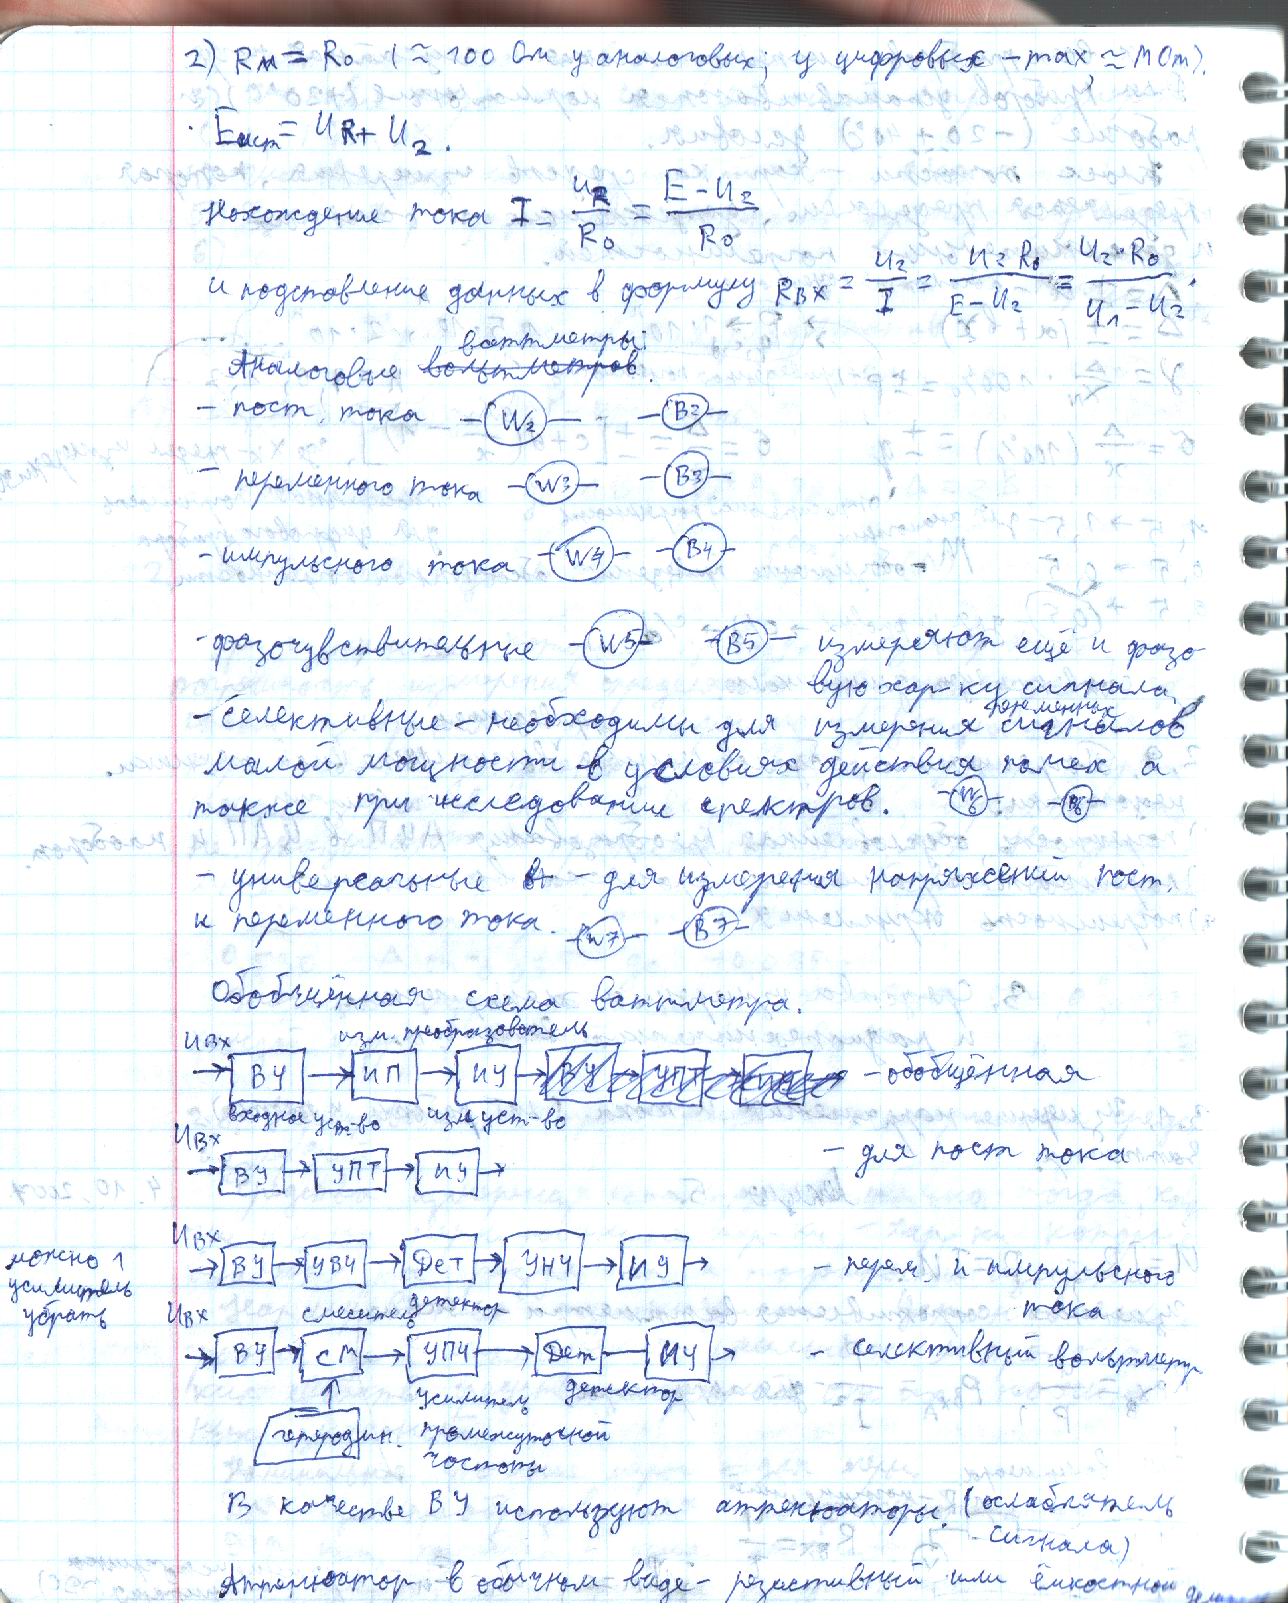 2) Rм = R₀ (≈ 100 Ом у аналоговых; у цифровых - max ≈ МОм).
Eист = UR + U₂.
Нахождение тока I = UR/R₀ = (E - U₂)/R₀
и подставление данных в формулу RВХ = U₂/I = U₂ R₀/(E - U₂) = U₂·R₀/(U₁ - U₂).
ваттметры:
Аналоговые вольтметров.
- пост. тока W2 В2
- переменного тока W3 В3
- импульсного тока W4 В4
- фазочувствительные W5 В5 - измеряют ещё и фазо
вую хар-ку сигнала.
- селективные - необходимы для измерения переменных сигналов
малой мощности в условиях действия помех а
также при исследовании спектров. W6 В6
- универсальные - для измерения напряжений пост.
и переменного тока. W7 В7
Обобщённая схема ваттметра.
UВХ изм. преобразователь
ВУ ИП ИУ ВУ УПТ - обобщённая
входное уст-во изм уст-во
UВХ
ВУ УПТ ИУ - для пост тока
UВХ
ВУ УВЧ Дет УНЧ ИУ - перем. и импульсного
тока
можно 1
усилитель
убрать
UВХ смеситель детектор
ВУ СМ УПЧ Дет ИУ - селективный вольтметр
усилитель детектор
гетеродин. промежуточной
частоты
В качестве ВУ используют аттенюаторы. (ослаблятель
сигнала)
Аттенюатор в обычном виде - резистивный или ёмкостной